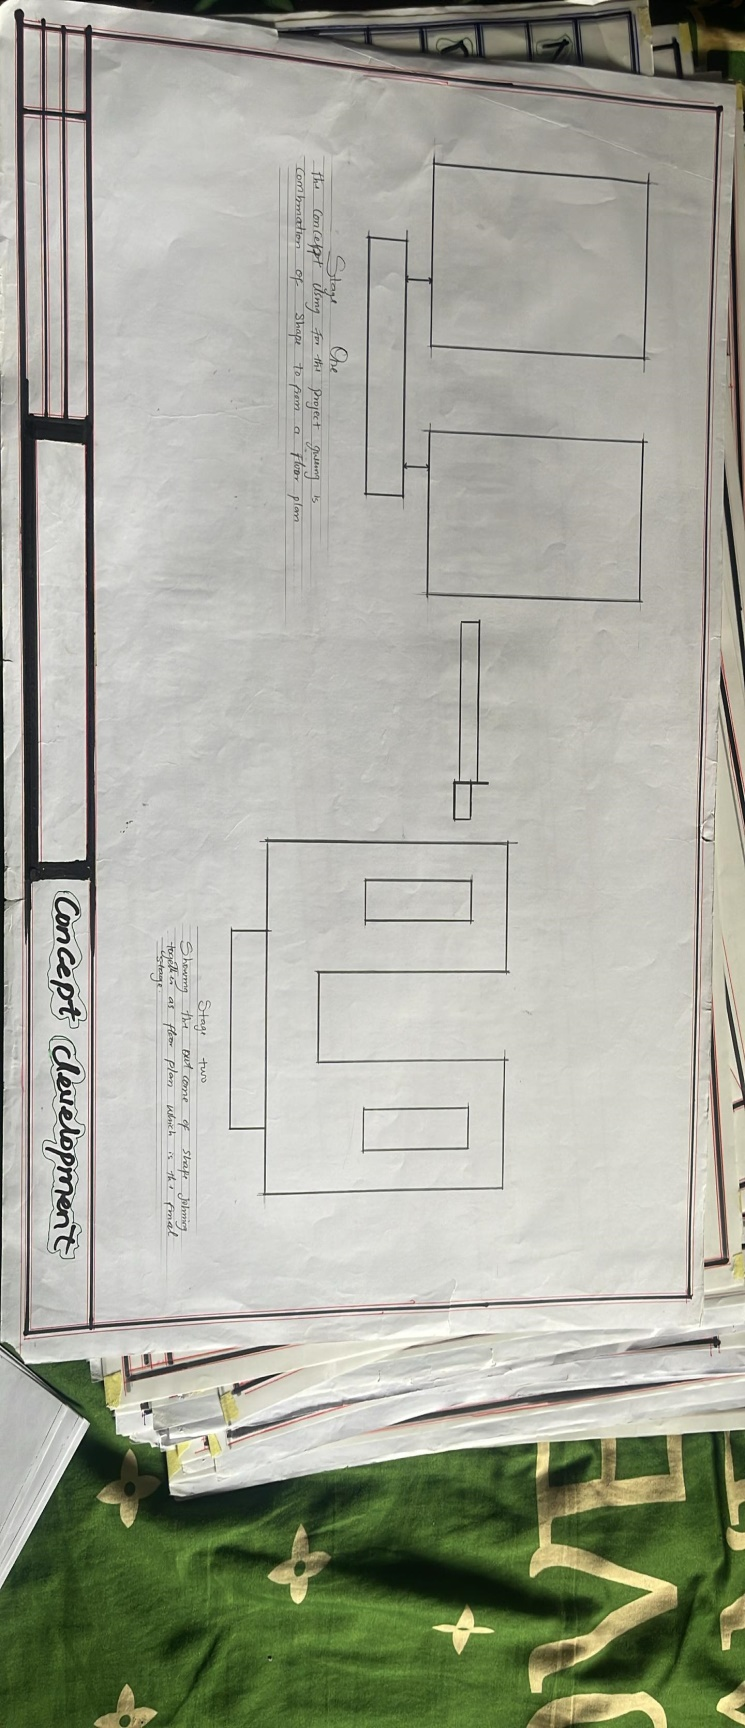 Stage One
The concept using for this project is
combination of shape to from a floor plan
Stage two
Showing the out come of shape joining
together as floor plan which is the final
stage
Concept development
OVE